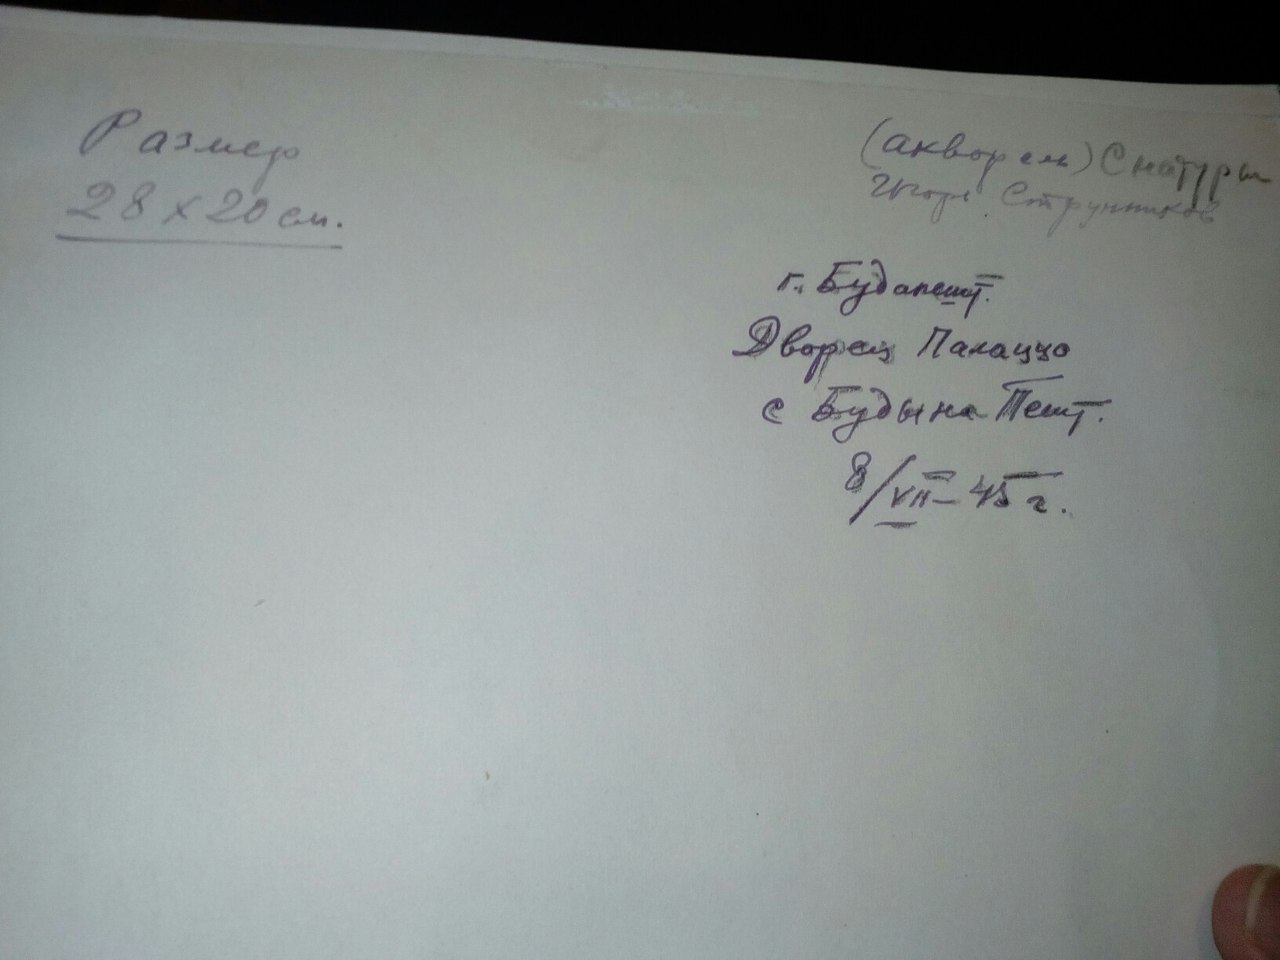 Размер
28 х 20 см.
(акварель) С натуры
Игорь Струнников
г. Будапешт.
Дворец Палаццо
с Буды на Пешт.
8/VII – 45 г.